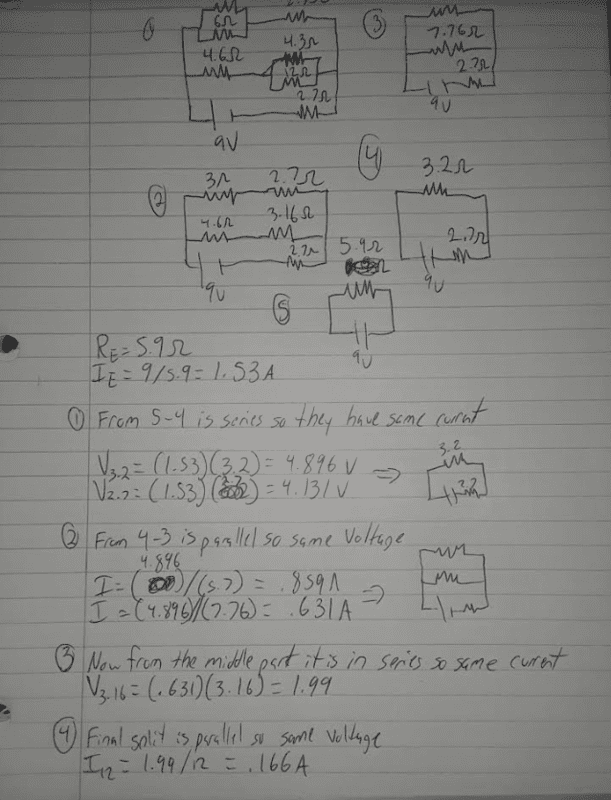 ① 6Ω
4.6Ω 4.3Ω
12Ω
2.7Ω
9V
③ 7.76Ω
2.7Ω
9V
② 3Ω 2.7Ω
4.6Ω 3.16Ω
2.7Ω
9V
④ 3.2Ω
2.7Ω
9V
⑤ 5.9Ω
9V
R_E = 5.9Ω
I_E = 9/5.9 = 1.53A
① From 5-4 is series so they have same current
V3.2 = (1.53)(3.2) = 4.896 V ⇒
V2.7 = (1.53)(2.7) = 4.131 V
3.2
2.7
② From 4-3 is parallel so same Voltage
4.896
I = ( )/(5.7) = .859A ⇒
I = (4.896)/(7.76) = .631A
③ Now from the middle part it is in series so same current
V3.16 = (.631)(3.16) = 1.99
④ Final split is parallel so same Voltage
I12 = 1.99/12 = .166A